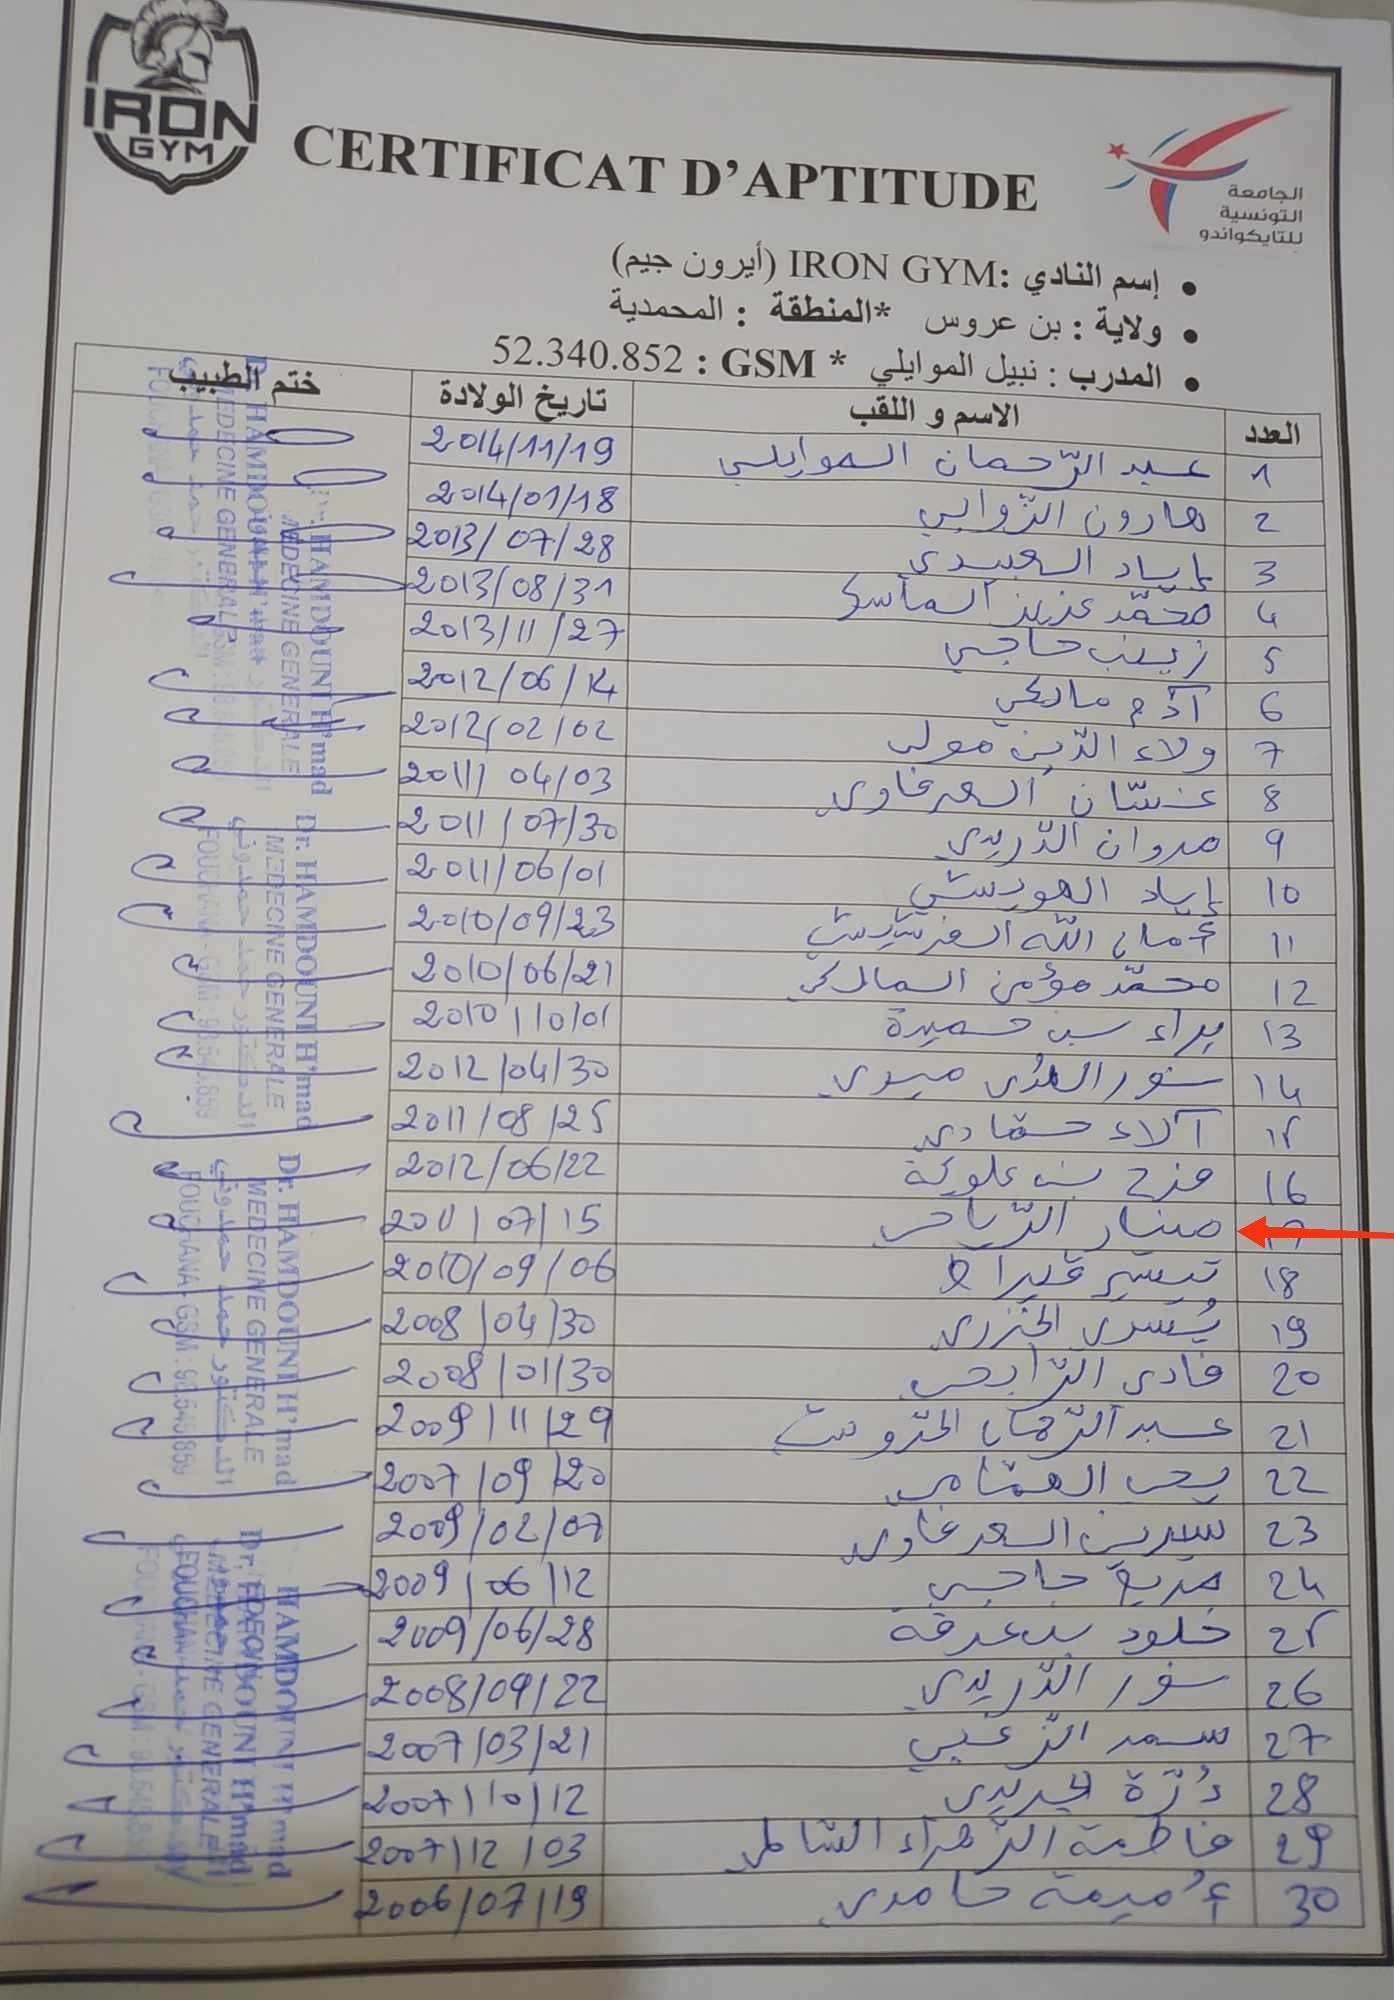 IRON
GYM
CERTIFICAT D'APTITUDE
الجامعة
التونسية
للتايكواندو
إسم النادي :IRON GYM (أيرون جيم)
ولاية : بن عروس *المنطقة : المحمدية
المدرب : نبيل الموايلي * GSM : 52.340.852
العدد الاسم و اللقب تاريخ الولادة ختم الطبيب
1 عبد الرّحمان الموايلي 2014/11/19
2 هارون الزوابي 2014/01/18
3 إياد العبيدي 2013/07/28
4 محمّد عزيز الماسي 2013/08/31
5 زينب حاجي 2013/11/27
6 آدم مالكي 2012/06/14
7 ولاء الدّين مولى 2012/02/02
8 غسّان العرفاوي 2011/04/03
9 مروان الدّريدي 2011/07/30
10 إياد 2011/06/01
11 2010/09/23
12 محمّد مؤمن المالكي 2010/06/21
13 براء بن حميدة 2010/10/01
14 نور الهدى ميدي 2012/04/30
15 آلاء حمّادي 2011/08/25
16 فرح بن علوية 2012/06/22
17 منار الرّياحي 2011/07/15
18 تيسير قيراط 2010/09/06
19 يُسرى الخزري 2008/04/30
20 فادي الرّابحي 2008/01/30
21 عبد الرّحمان 2009/11/29
22 يحي العثماني 2007/09/20
23 سيرين العرفاوي 2009/02/07
24 مرية حاجي 2009/06/12
25 خلود بن عرفة 2009/06/28
26 نور الدّريدي 2008/09/22
27 سمر الزغبي 2007/03/21
28 دُرّة الجريدي 2007/10/12
29 فاطمة الزّهراء الشاملي 2007/12/03
30 أُميمة حامدي 2006/07/19
Dr. HAMDOUNI H'mad
MEDECINE GENERALE
الدكتور حمد حمدوني
FOUCHANA - GSM : 98.545.859